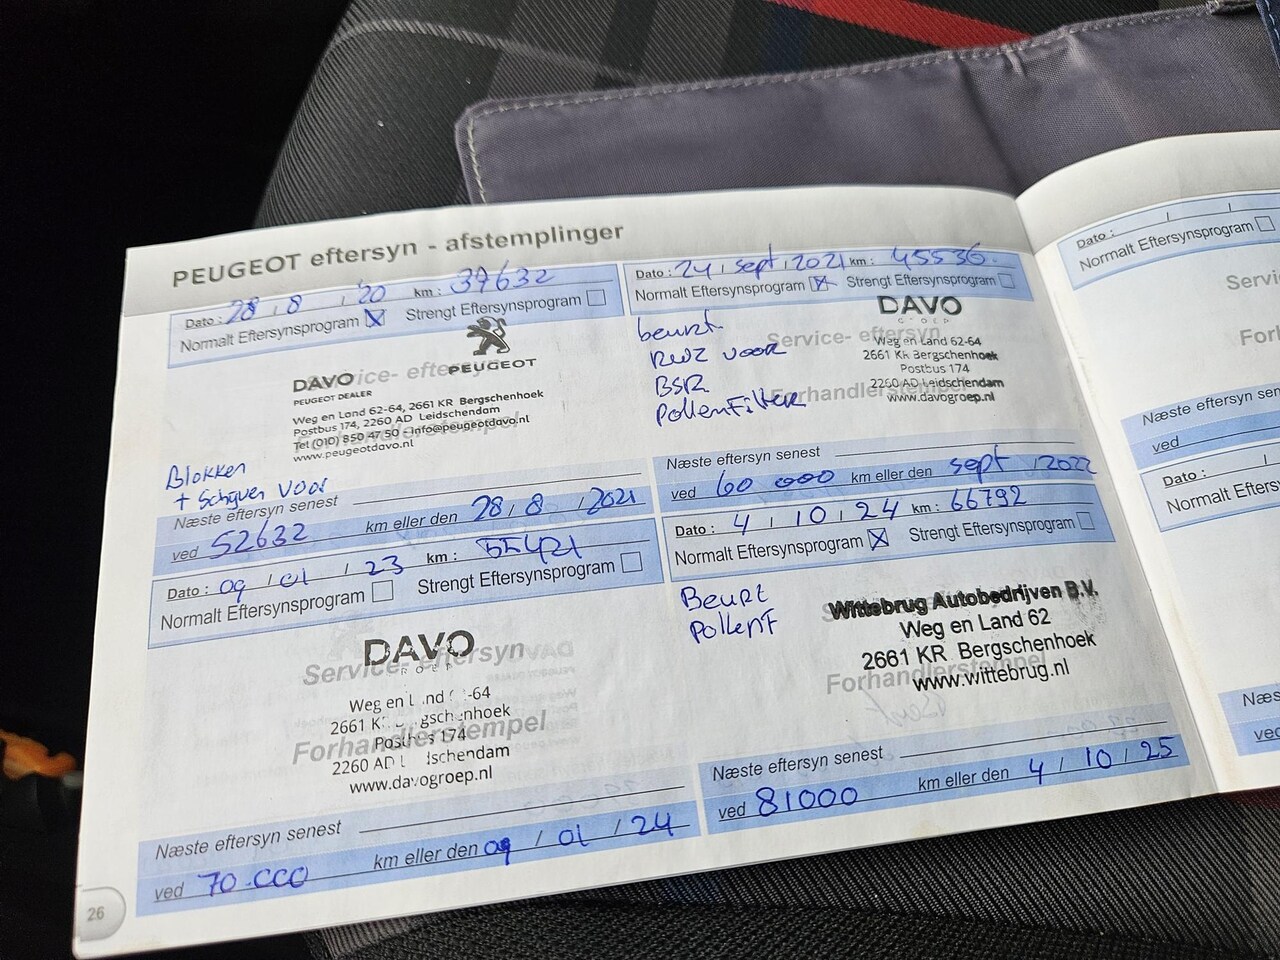 PEUGEOT eftersyn - afstemplinger
Dato : 28 / 8 / '20 km : 37632
Normalt Eftersynsprogram Strengt Eftersynsprogram
Service- eftersyn
PEUGEOT
DAVO
PEUGEOT DEALER
Weg en Land 62-64, 2661 KR Bergschenhoek
Postbus 174, 2260 AD Leidschendam
Tel (010) 850 47 50 - info@peugeotdavo.nl
www.peugeotdavo.nl
Blokken
+ Schijven voor
Næste eftersyn senest
ved 52632 km eller den 28 / 8 / 2021
Dato : 24 / sept / 2021 km : 45536
Normalt Eftersynsprogram Strengt Eftersynsprogram
beurt
RWZ voor
BSR
Pollenfilter
Service- eftersyn
Forhandlerstempel
DAVO
GROEP
Weg en Land 62-64
2661 KR Bergschenhoek
Postbus 174
2260 AD Leidschendam
www.davogroep.nl
Næste eftersyn senest
ved 60 000 km eller den sept / 2022
Dato : 09 / 01 / 23 km : 55421
Normalt Eftersynsprogram Strengt Eftersynsprogram
DAVO
Service- eftersyn
Forhandlerstempel
Postbus 174
www.davogroep.nl
Næste eftersyn senest
ved 70.000 km eller den 09 / 01 / 24
Dato : 4 / 10 / 24 km : 66792
Normalt Eftersynsprogram Strengt Eftersynsprogram
Beurt
PollenF
Wittebrug Autobedrijven B.V.
Weg en Land 62
2661 KR Bergschenhoek
Forhandlerstempel
www.wittebrug.nl
Næste eftersyn senest
ved 81000 km eller den 4 / 10 / 25
26
Dato : / /
Normalt Eftersynsprogram
Næste eftersyn
ved
Dato : /